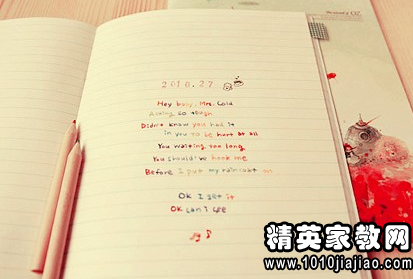 2010.27
Hey baby, Mrs. Cold
Acting so tough
Didn't know you had it
In you to be hurt at all
You waiting too long
You should've hook me
Before I put my raincoat on
OK I get it
OK can I see
精英家教网
www.1010jiajiao.com